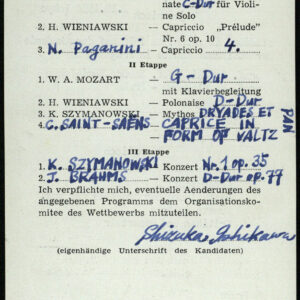 nate C-Dur für Violi-
ne Solo
2. H. WIENIAWSKI — Capriccio „Prélude"
Nr. 6 op. 10
3. N. Paganini — Capriccio 4.
II Etappe
1. W. A. MOZART — G-Dur
mit Klavierbegleitung
2. H. WIENIAWSKI — Polonaise D-Dur
3. K. SZYMANOWSKI — Mythos DRYADES ET PAN
4. C. SAINT-SAËNS CAPRICE IN
FORM OF VALTZ
III Etappe
1. K. SZYMANOWSKI — Konzert Nr. 1 op. 35
2. J. BRAHMS — Konzert D-Dur op. 77
Ich verpflichte mich, eventuelle Aenderungen des
angegebenen Programms dem Organisationsko-
mitee des Wettbewerbs mitzuteilen.
Shizuka Ishikawa
(eigenhändige Unterschrift des Kandidaten)